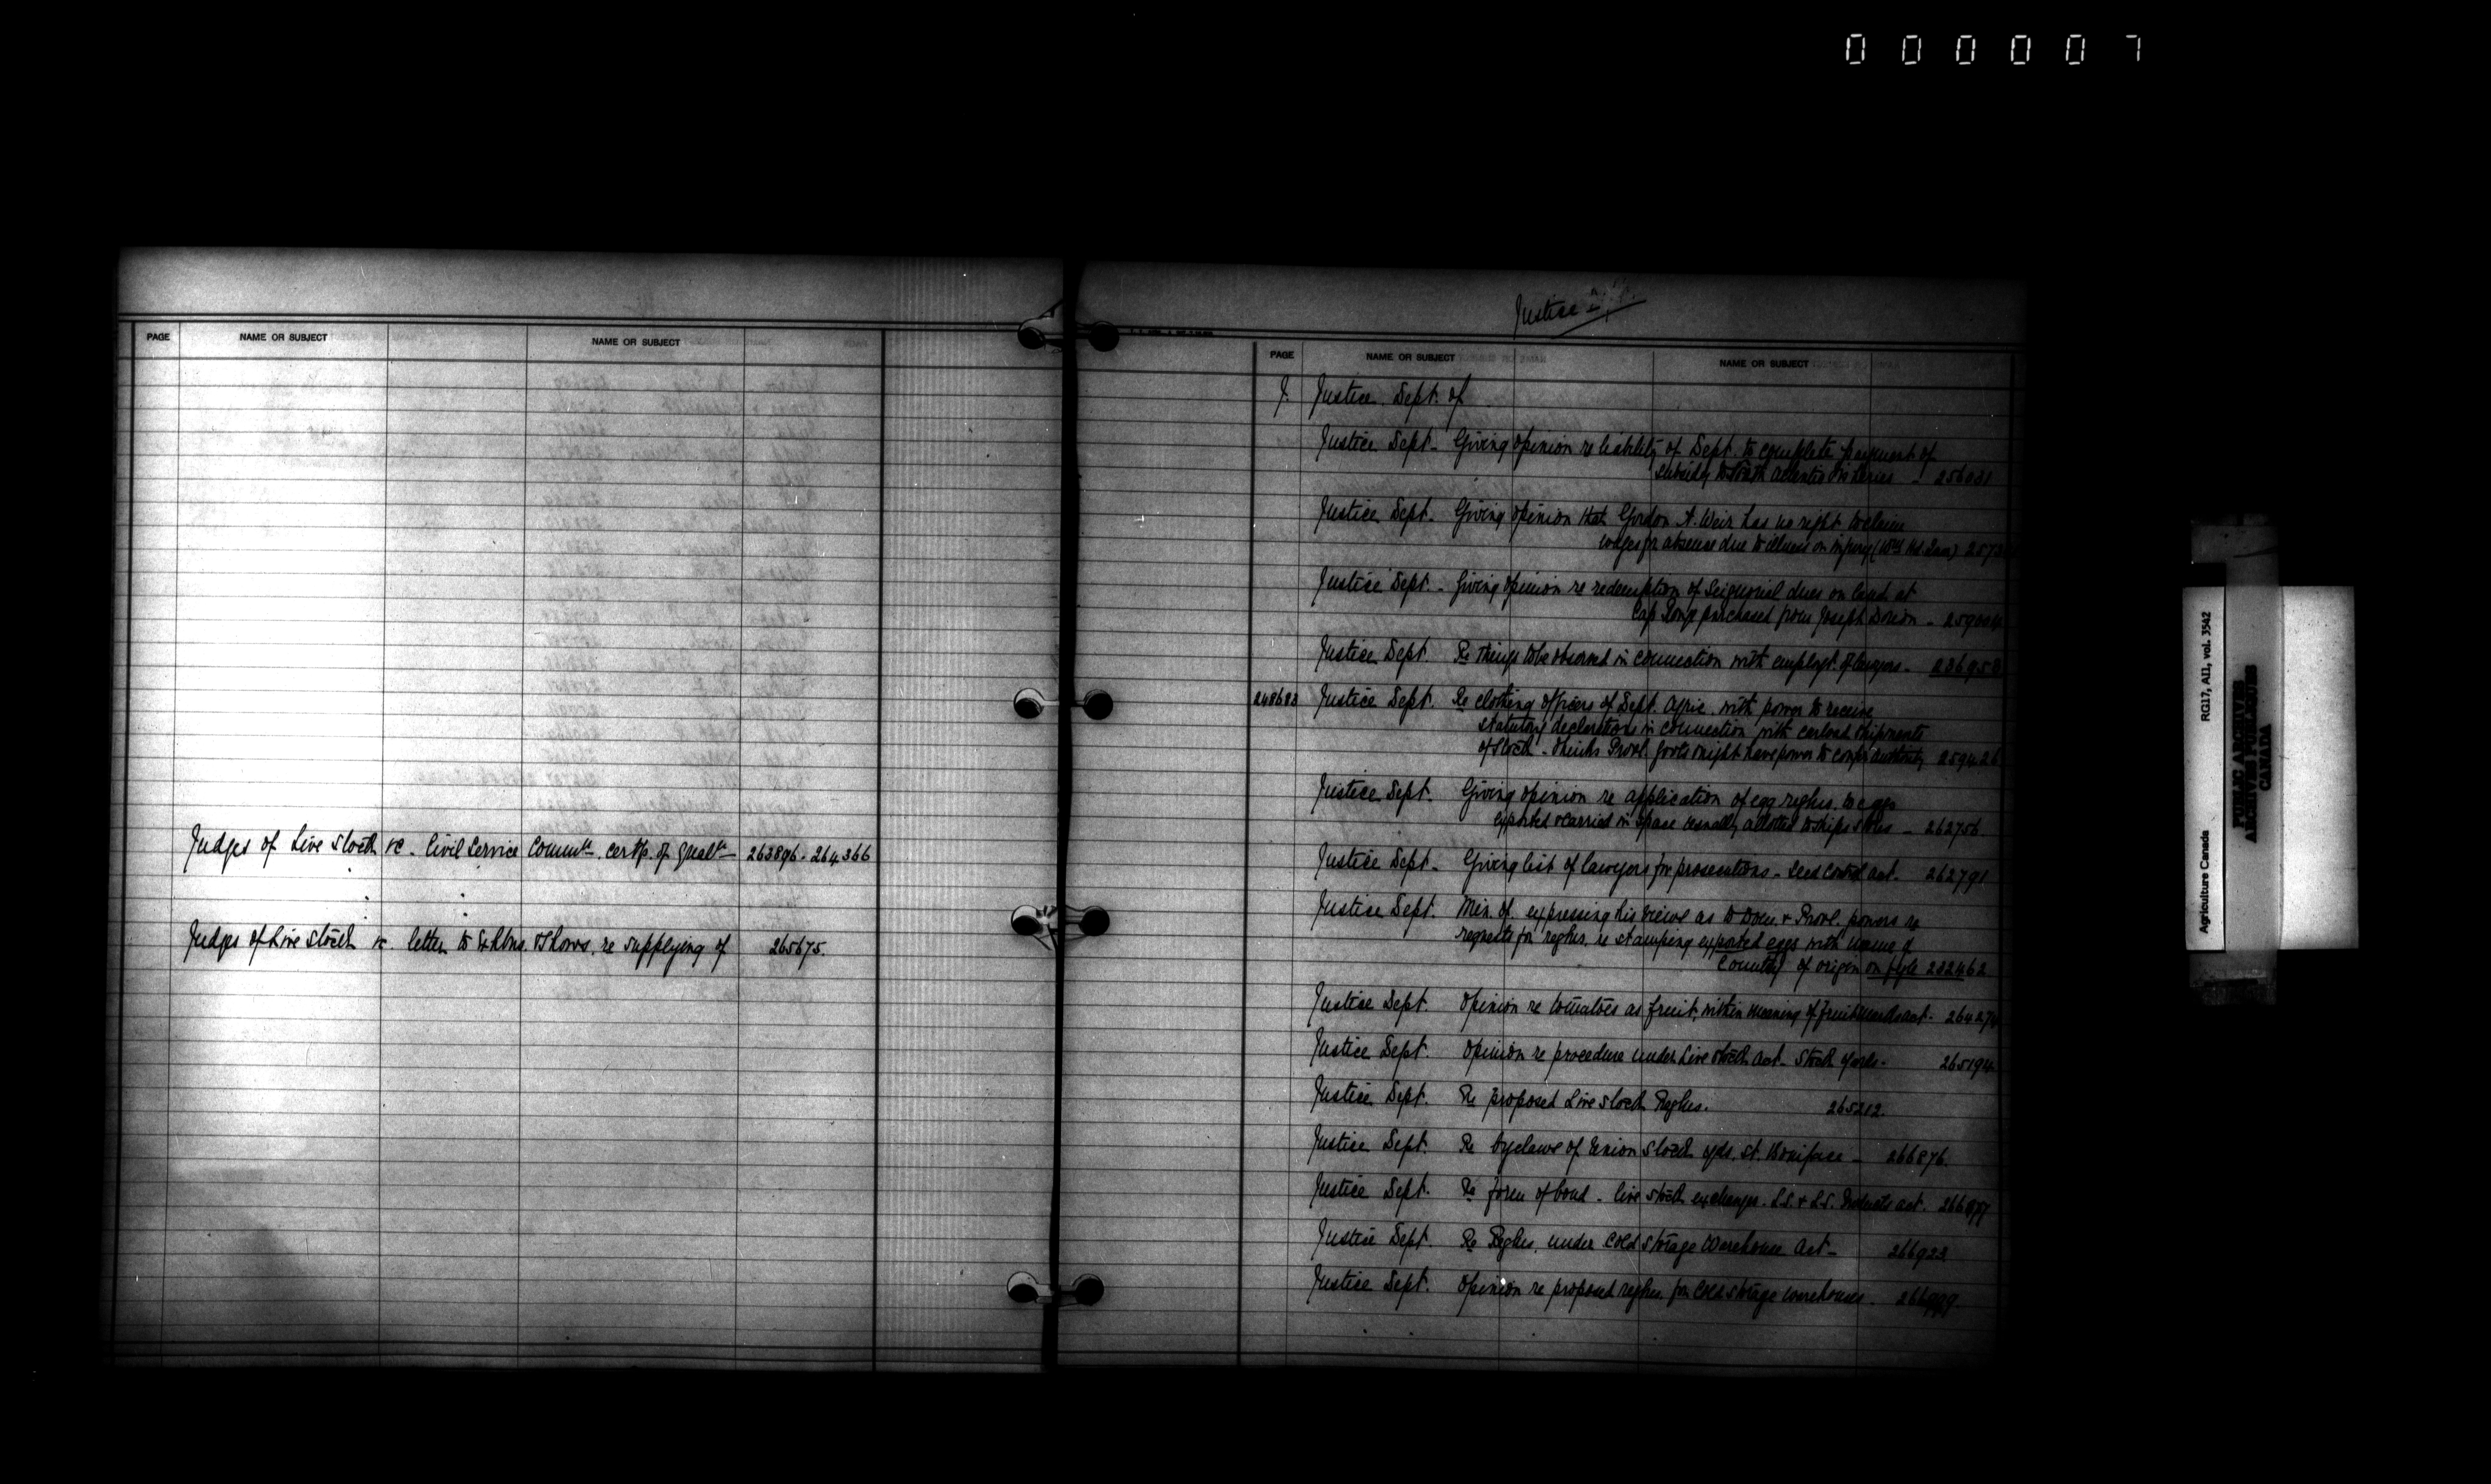 000007
PAGE NAME OR SUBJECT NAME OR SUBJECT
Judges of Live Stock &c - Civil Service Commn. certfs. of Qualn - 263896 - 264366
Judges of Live Stock &c. letter to Exhbns. & Shows. re supplying of 265675.
Justice
PAGE NAME OR SUBJECT NAME OR SUBJECT
J. Justice. Dept. of
Justice Dept - Giving opinion re liability of Dept. to complete payment of
subsidy to South Atlantic Fisheries - 256031
Justice Dept - Giving opinion that Gordon A. Weir has no right to claim
wages for absence due to illness or injury
Justice Dept - Giving opinion re redemption of Seigneurial dues on land at
Cap Rouge purchased from Joseph Dorion -
Justice Dept. Re things to be observed in connection with employt. of lawyers -
248683 Justice Dept. Re clothing officers of Dept. Agric. with power to receive
statutory declarations in connection with carload shipments
of Stock - thinks Provl. Govts might have power to confer authority 259426
Justice Dept. Giving opinion re application of egg reglns. to eggs
exported & carried in space usually allotted to ships stores - 262756
Justice Dept - Giving list of lawyers for prosecutions - Seed Control Act - 262791
Justice Dept. Min. of. expressing his views as to Dom. & Provl. powers re
requests for reglns. re stamping exported eggs with name of
Country of origin on fyle 232462
Justice Dept. Opinion re tomatoes as fruit, within meaning of Fruit Marks Act -
Justice Dept. Opinion re procedure under Live Stock Act - Stock Yards - 265194
Justice Dept. Re proposed Live Stock Reglns. 265212.
Justice Dept. Re byelaws of Union Stock Yds. St. Boniface - 266876.
Justice Dept. Re form of bond - live stock exchange - L.S. & L.S. Products Act. 266877
Justice Dept. Re Reglns. under Cold Storage Warehouse Act - 266923
Justice Dept. Opinion re proposed reglns. for Cold Storage warehouses.
Agriculture Canada RG17, AII, vol. 3542
PUBLIC ARCHIVES
ARCHIVES PUBLIQUES
CANADA